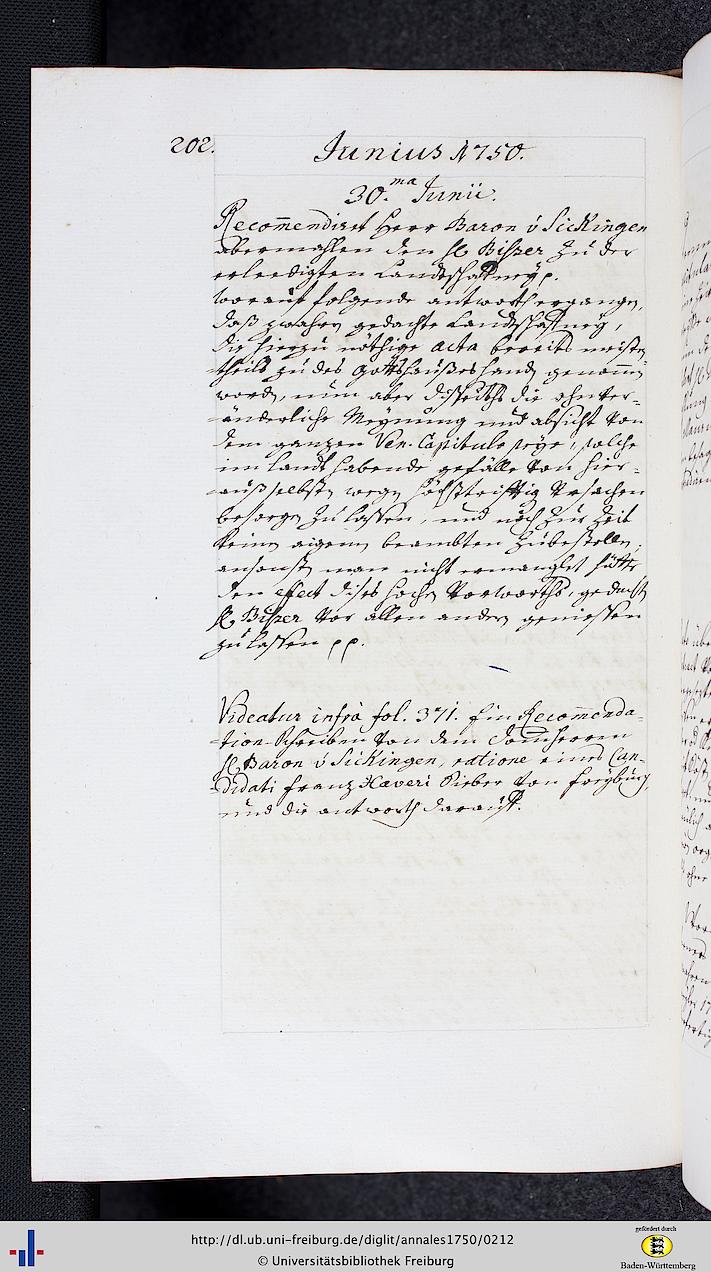 202.
Junius 1750.
30.ma Junii.
Recom̅endiret Herr Baron v Sickingen
abermahlen den H. Bißer zu der
erledigten Landtschaffney p.
worauf folgende antworth ergangen,
daß zwahrn gedachte Landtschaffney,
die hierzu nöthige acta bereits meisten-
-theils zu des Gottshaußes handt genom̅en
worden, nun aber die ohnver-
-änderliche Meynung und absicht von
dem ganzen Ven. Capitulo seye, solche
im Landt habende gefälle von hier-
-auß selbsten wegen höchsttrifftig Ursachen
besorgen zu lassen, und noch zur Zeit
keinen aigenen beambten zubestellen,
ansonst man nicht ermanglet hätte
den effect dises hochen Vorworths, gedacht
H. Bißer vor allen andern geniessen
zu lassen pp.
Videatur infrà fol. 371. Ein Recom̅enda-
-tion-Schreiben von dem Domherren
H. Baron v Sickingen, ratione eines Can-
-didati Franz Xaveri Rieber von Freyburg,
und die antworth darauff.
http://dl.ub.uni-freiburg.de/diglit/annales1750/0212
© Universitätsbibliothek Freiburg
gefördert durch
Baden-Württemberg